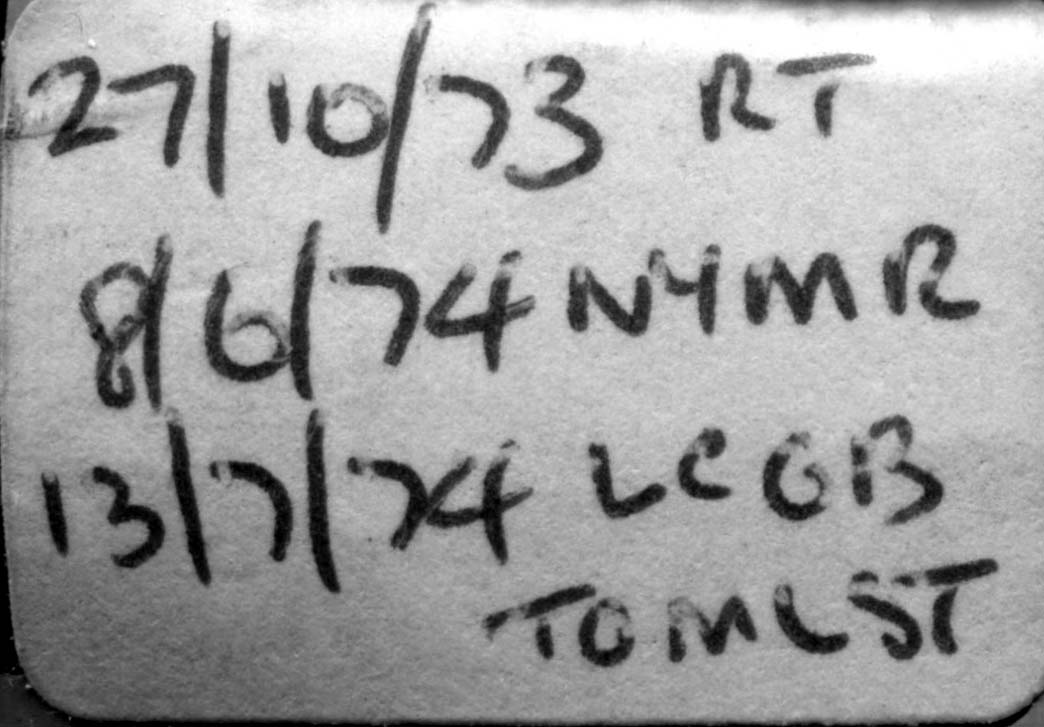 27/10/73 RT
8/6/74 NYMR
13/7/74 LCGB
TO M L ST